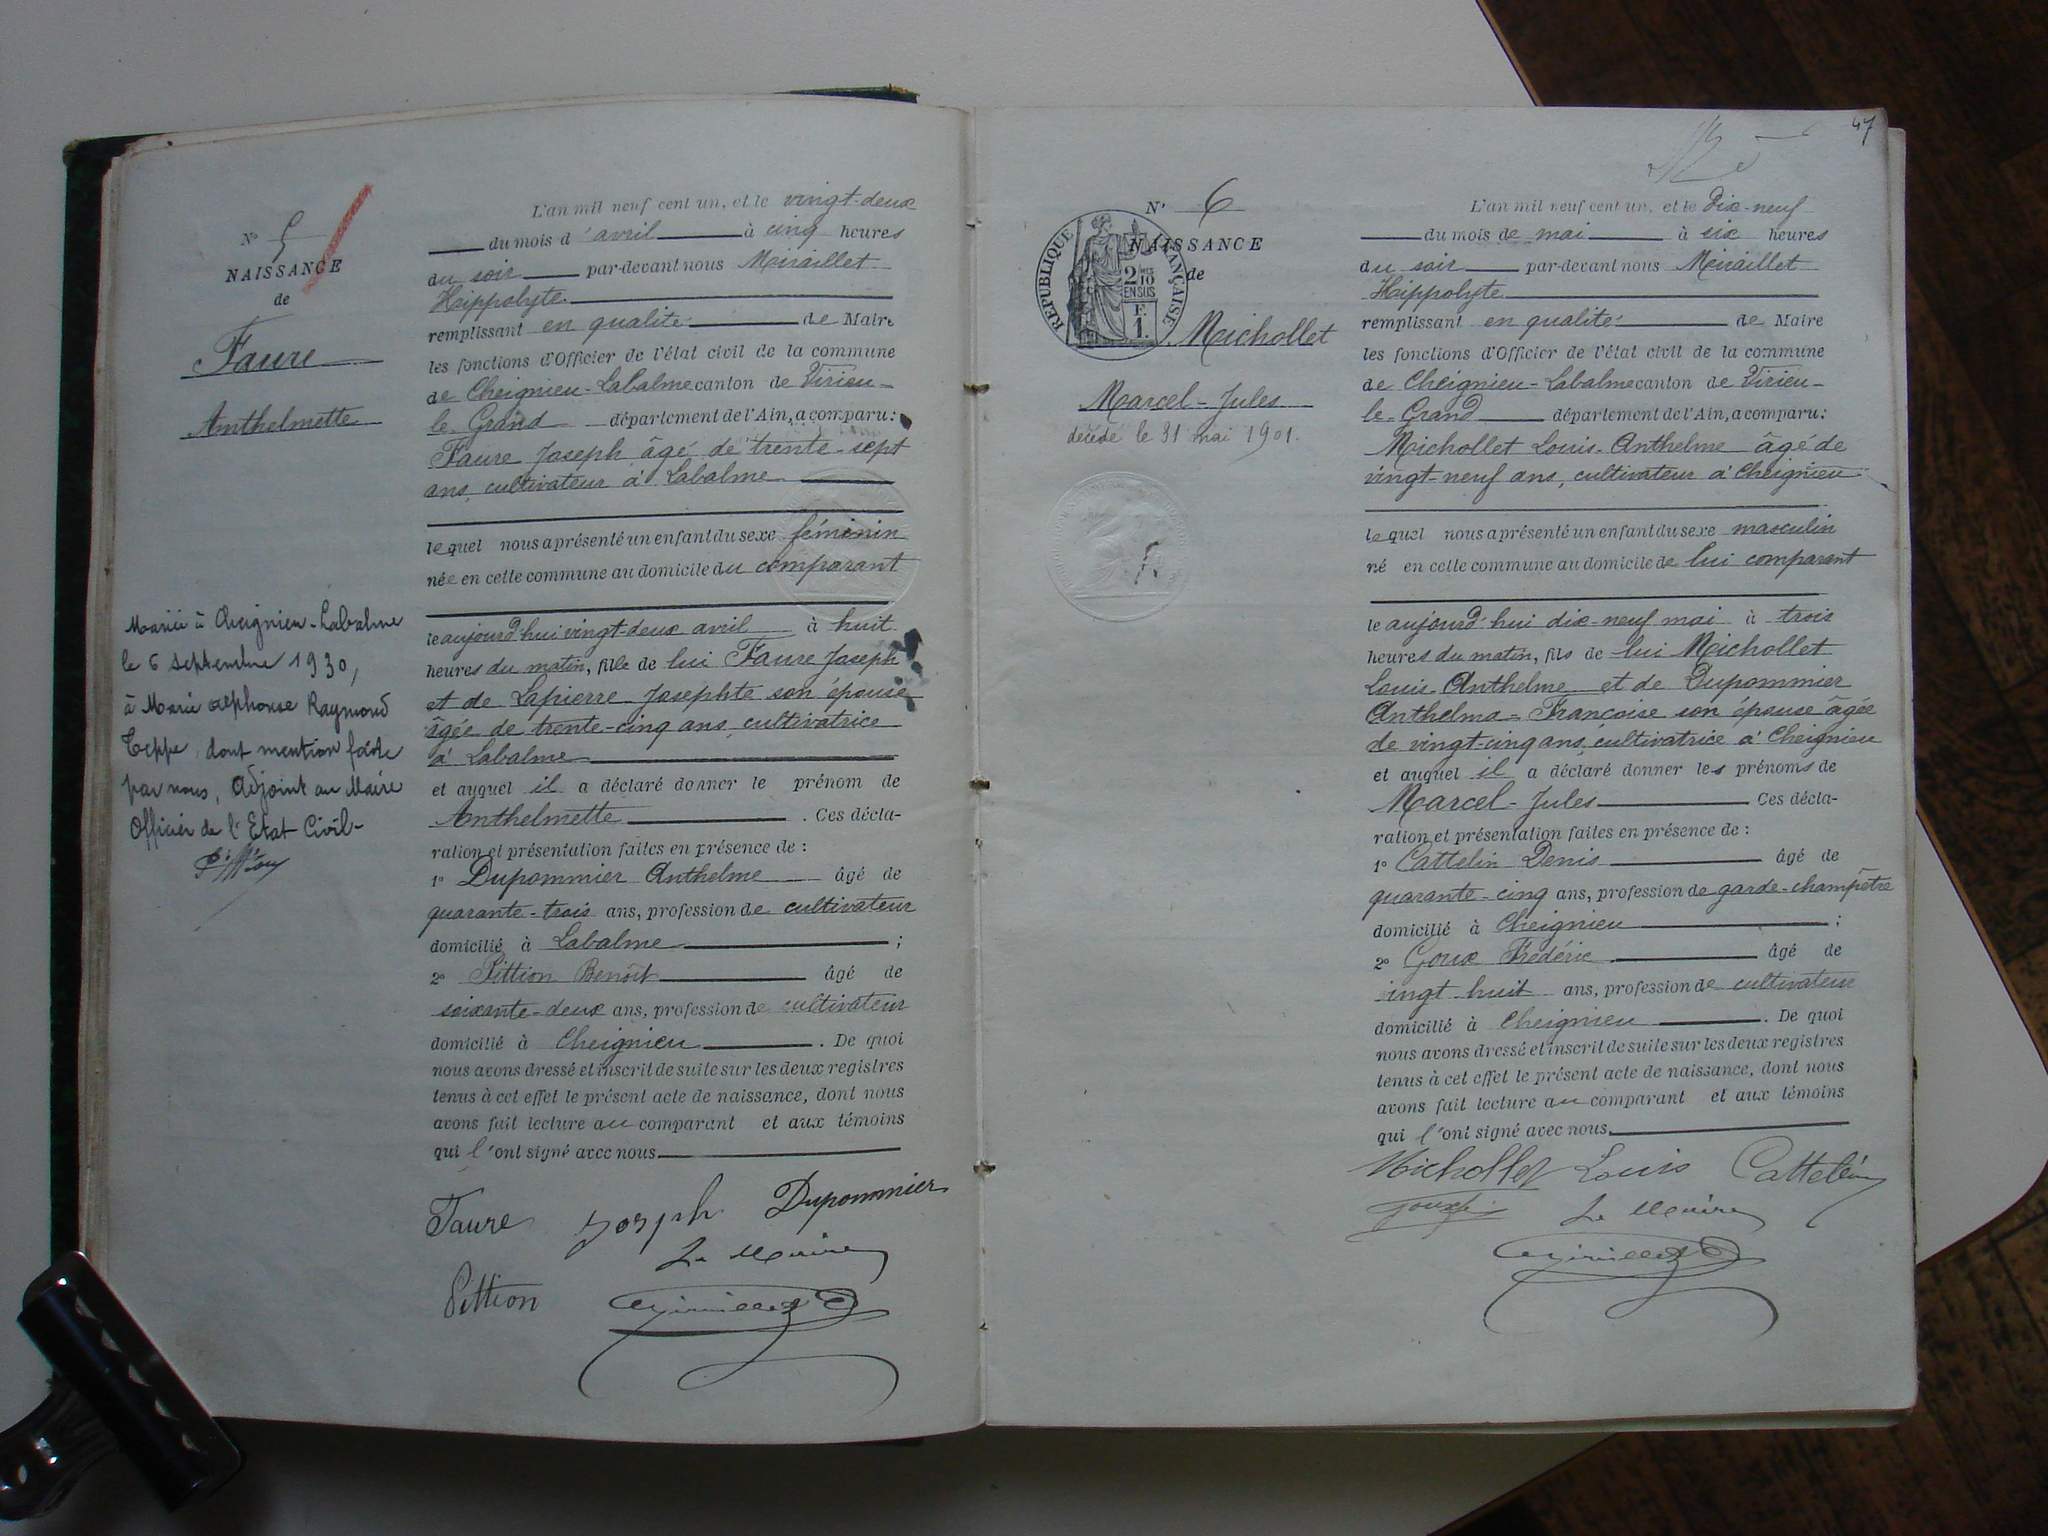 N° 5
NAISSANCE
de
Faure
Anthelmette
Mariée à Cheignieu-Labalme
le 6 septembre 1930,
à Marie Alphonse Raymond
Teppe, dont mention faite
par nous, Adjoint au Maire
Officier de l'Etat Civil-
L'an mil neuf cent un, et le vingt-deux
du mois d'avril à cinq heures
du soir par-devant nous Miraillet
Hippolyte
remplissant en qualité de Maire
les fonctions d'Officier de l'état civil de la commune
de Cheignieu-Labalme canton de Virieu-
le-Grand département de l'Ain, a comparu:
Faure Joseph âgé de trente-sept
ans, cultivateur à Labalme
lequel nous a présenté un enfant du sexe féminin
née en cette commune au domicile du comparant
le aujourd'hui vingt-deux avril à huit
heures du matin, fille de lui Faure Joseph
et de Lapierre Josephte son épouse
âgée de trente-cinq ans, cultivatrice
à Labalme
et auquel il a déclaré donner le prénom de
Anthelmette. Ces décla-
ration et présentation faites en présence de:
1° Dupommier Anthelme âgé de
quarante-trois ans, profession de cultivateur
domicilié à Labalme;
2° Pittion Benoit âgé de
soixante-deux ans, profession de cultivateur
domicilié à Cheignieu. De quoi
nous avons dressé et inscrit de suite sur les deux registres
tenus à cet effet le présent acte de naissance, dont nous
avons fait lecture au comparant et aux témoins
qui l'ont signé avec nous
Faure Joseph Dupommier
Le Maire
Pittion
47
N° 6
NAISSANCE
de
RÉPUBLIQUE FRANÇAISE
2/10
EN SUS
F.
1.
Michollet
Marcel-Jules
décédé le 31 mai 1901.
L'an mil neuf cent un, et le Dix-neuf
du mois de mai à six heures
du soir par-devant nous Miraillet
Hippolyte
remplissant en qualité de Maire
les fonctions d'Officier de l'état civil de la commune
de Cheignieu-Labalme canton de Virieu-
le-Grand département de l'Ain, a comparu:
Michollet Louis-Anthelme âgé de
vingt-neuf ans, cultivateur à Cheignieu
lequel nous a présenté un enfant du sexe masculin
né en cette commune au domicile de lui comparant
le aujourd'hui dix-neuf mai à trois
heures du matin, fils de lui Michollet
Louis-Anthelme et de Dupommier
Anthelma-Françoise son épouse âgée
de vingt-cinq ans, cultivatrice à Cheignieu
et auquel il a déclaré donner les prénoms de
Marcel-Jules Ces décla-
ration et présentation faites en présence de:
1° Cattelin Denis âgé de
quarante-cinq ans, profession de garde-champêtre
domicilié à Cheignieu;
2° Goux Frédéric âgé de
vingt huit ans, profession de cultivateur
domicilié à Cheignieu. De quoi
nous avons dressé et inscrit de suite sur les deux registres
tenus à cet effet le présent acte de naissance, dont nous
avons fait lecture au comparant et aux témoins
qui l'ont signé avec nous
Michollet Louis Cattelin
Le Maire